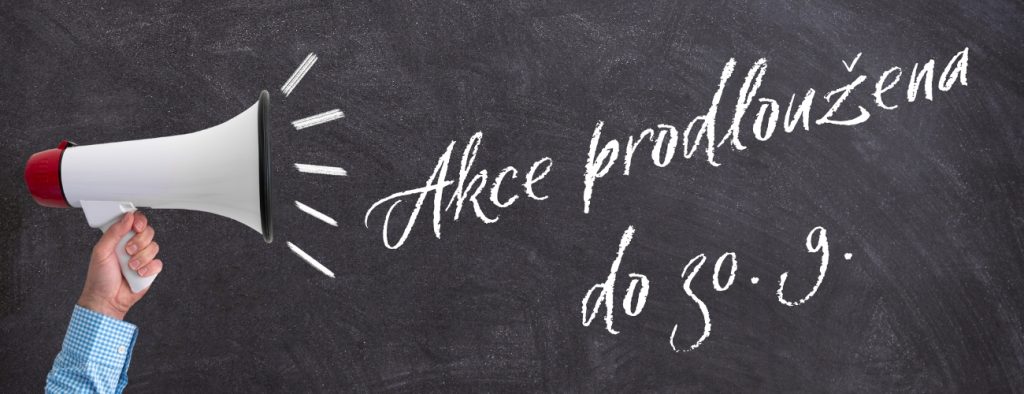 Akce prodloužena
do 30. 9.